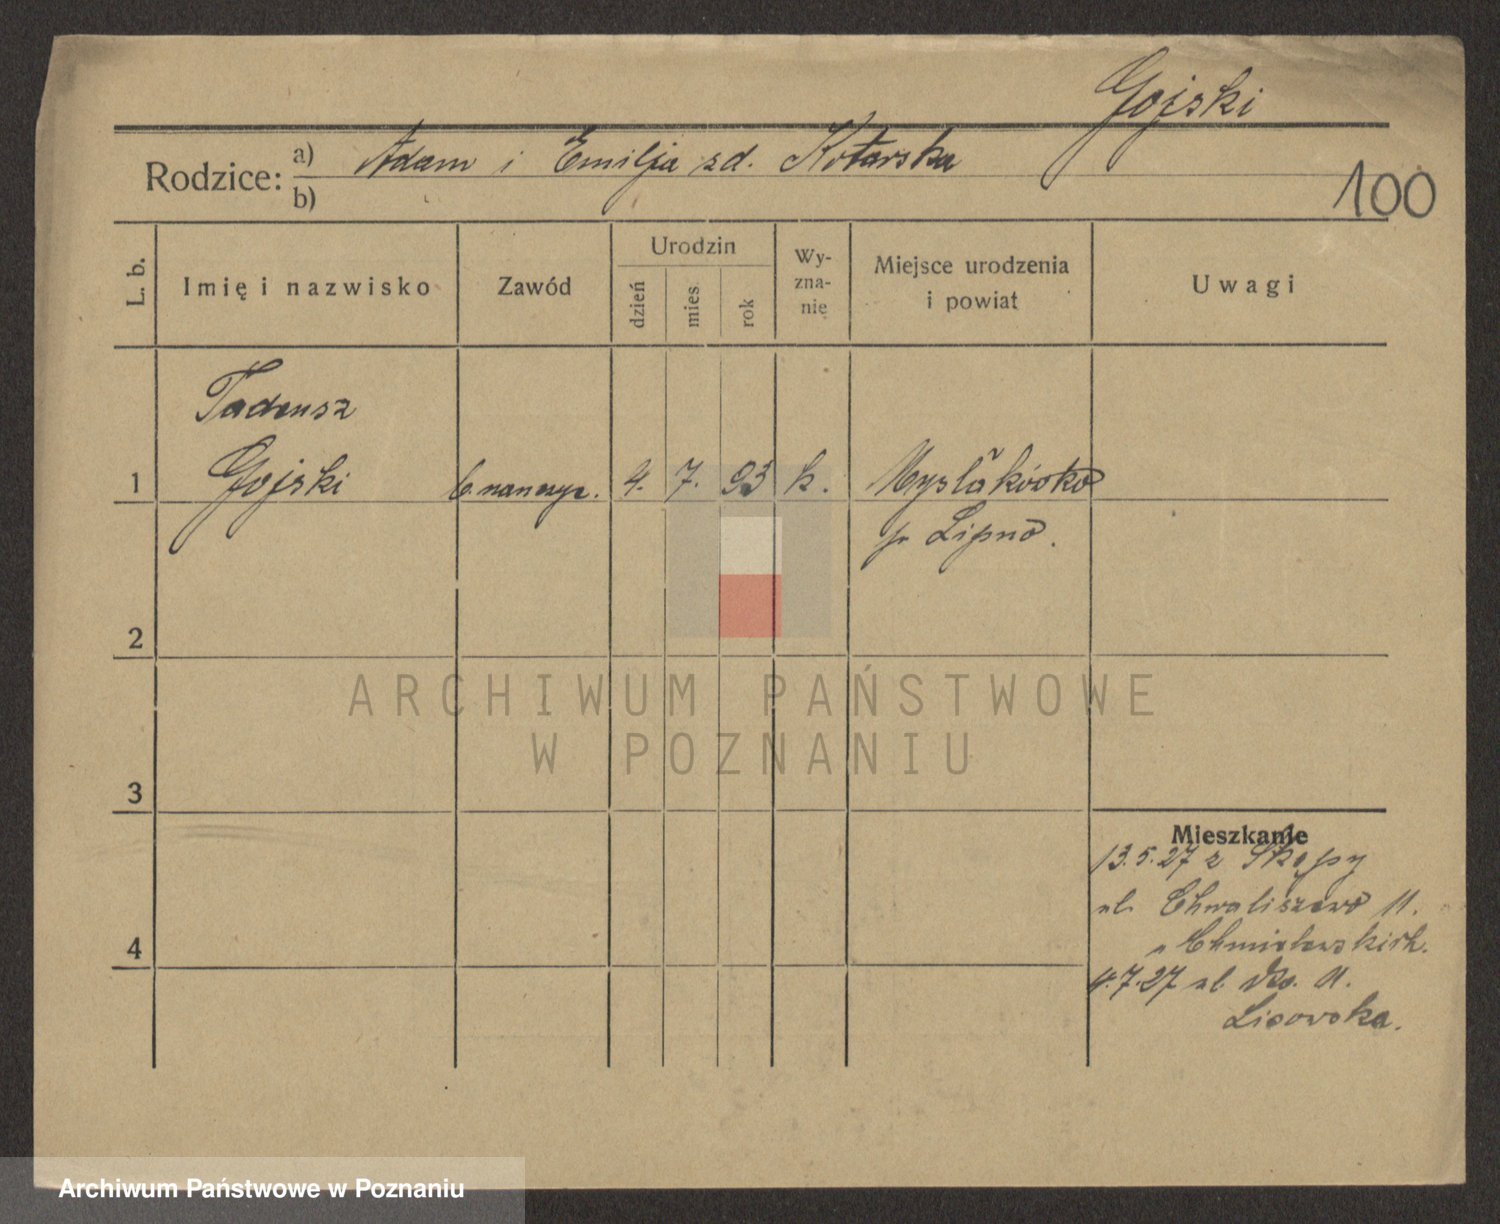 Gojski
Rodzice: a) Adam i Emilja zd. Kotarska
b)
100
L. b.
Imię i nazwisko
Zawód
Urodzin
dzień
mies
rok
Wy-
zna-
nie
Miejsce urodzenia
i powiat
Uwagi
Tadeusz
1 Gojski b. nauczyc. 4. 7. 93 k. Mysłakówko
p. Lipno.
2
ARCHIWUM PAŃSTWOWE
W POZNANIU
3
Mieszkanie
13.5.27 z Skępy
ul. Chwaliszewo 11.
4 " Chmielewskich.
4.7.27 ul. 11.
Lisowska.
Archiwum Państwowe w Poznaniu